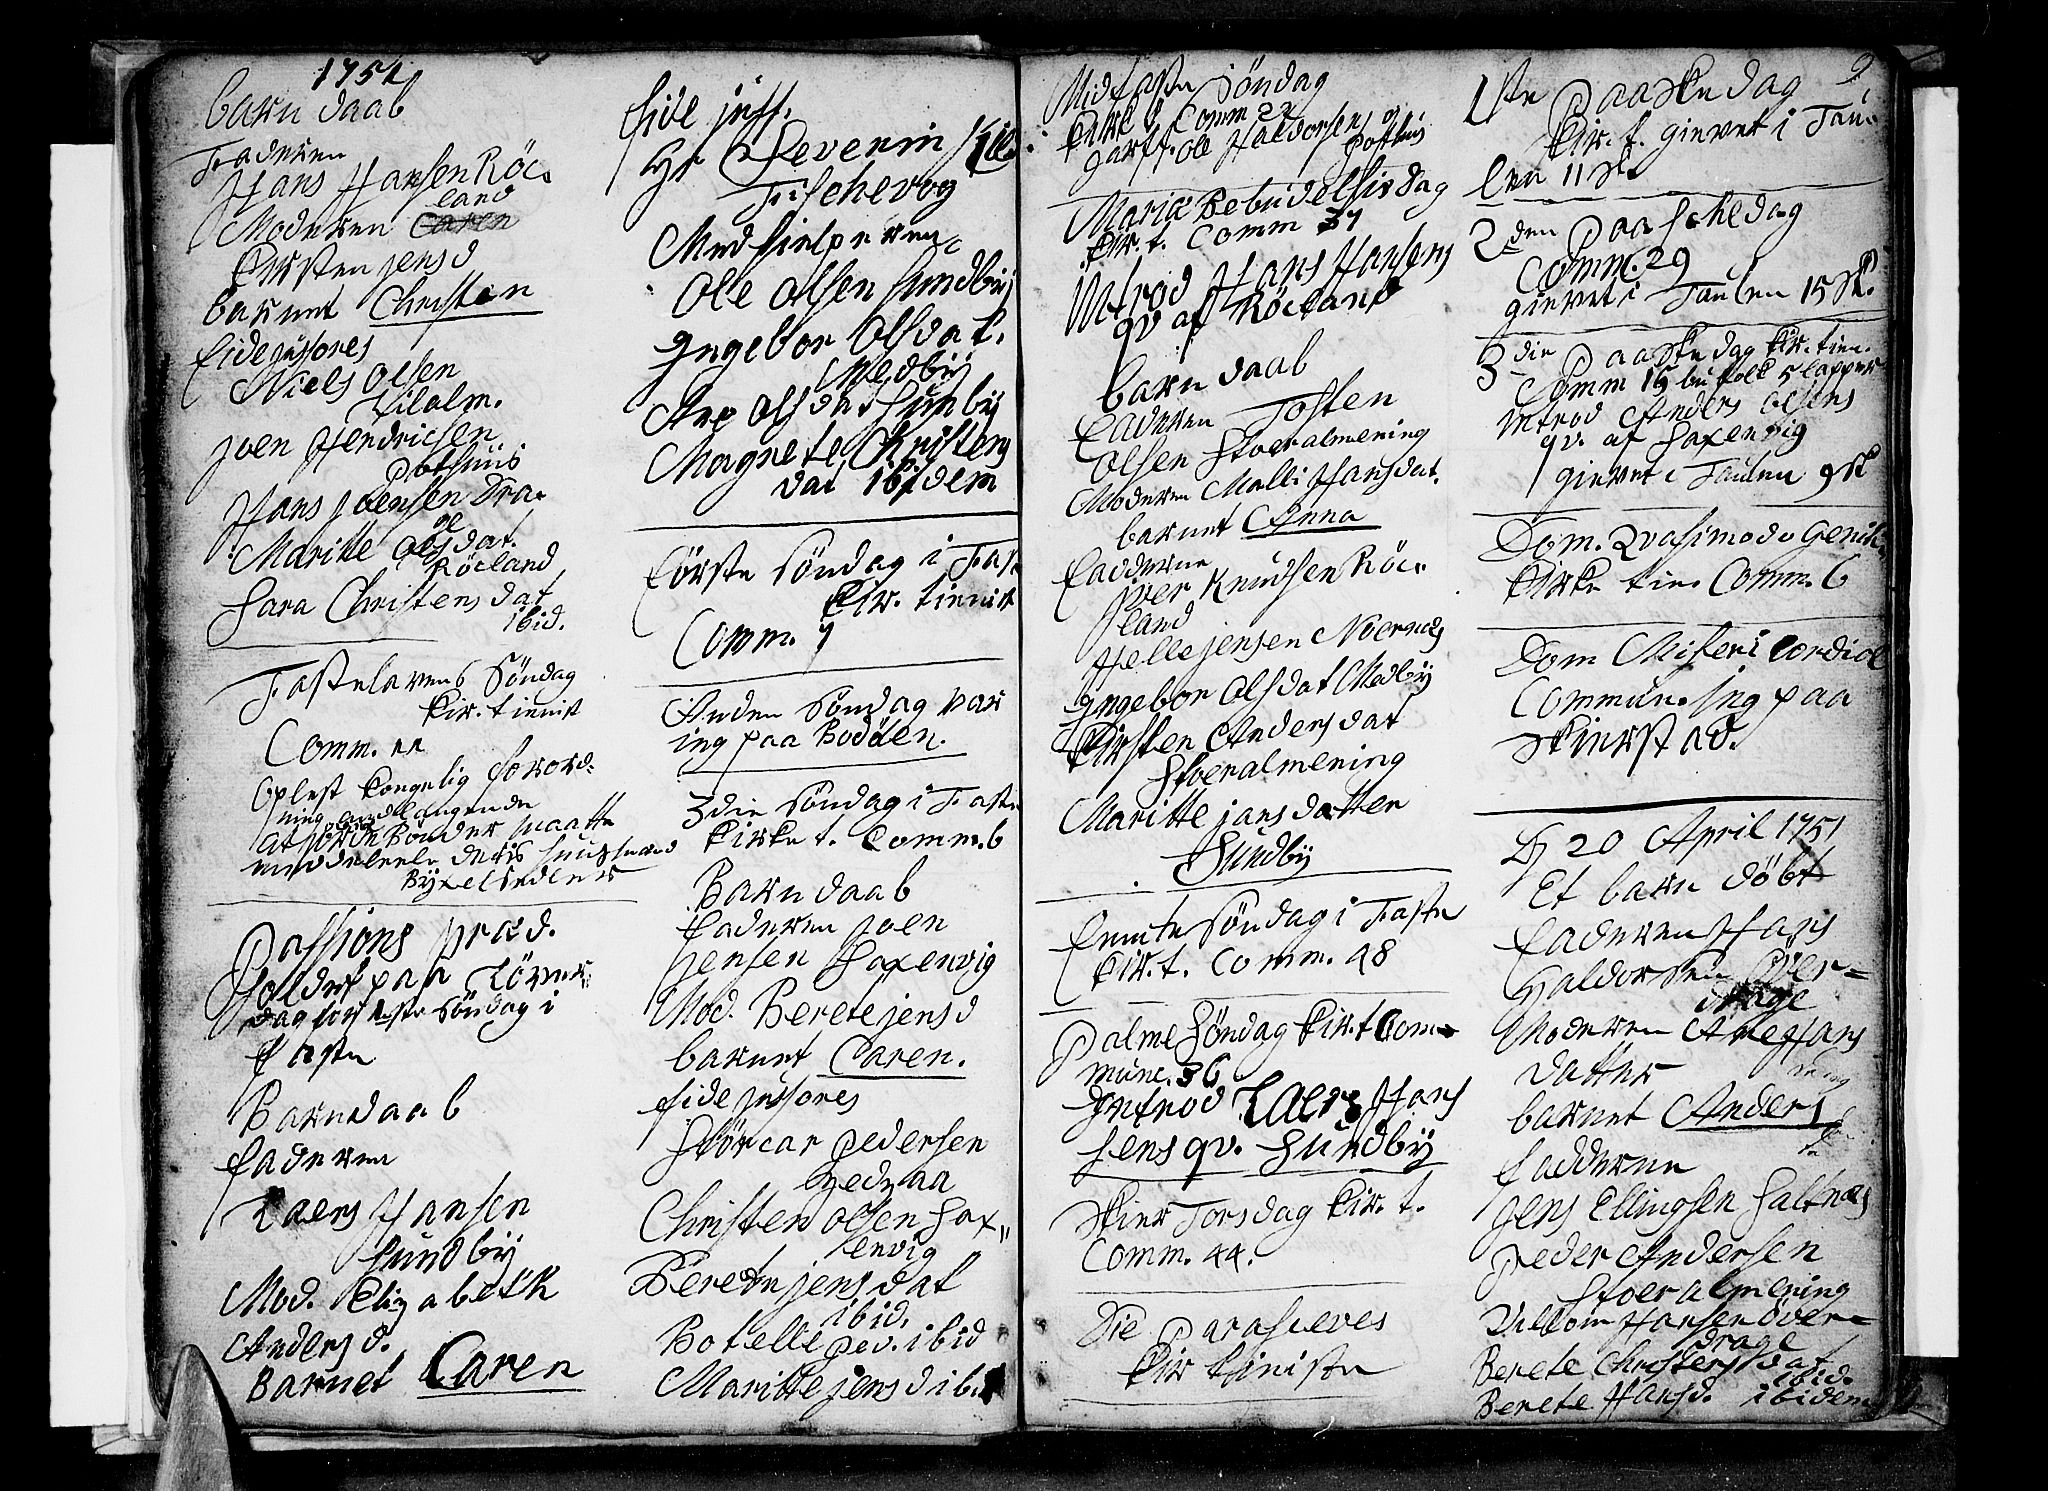 1751
barn daab
Faderen
Hans Hansen Röc-
land
Moderen Caren
Kirsten jensd
barnet Christen
Fidejussores
Niels olsen
Vilalm.
joen Hendrichsen
Posthuus
Hans joensen Dra-
ge
Maritte Olsdat.
Röcland
Sara Christens dat
ibid.
Fastelavens Söndag
kir. tienist
Comm.
Oplest kongelig forord-
ning anlangende
at Bönder maatte
meddeele deris huusmænd
Byxelsedler
Passions præd.
Holdet paa Löver-
dag for 1ste Söndag i
faste
Barndaab
faderen
Laers Hansen
Sundby
Mod. Elizabeth
Andersd.
Barnet Caren
fide juss.
Hr Severin
Fischevog
Medhielperen
Ole olsen Sundby
Ingebor Olsdat.
Medby
Are Olsdat Sundby
Magnete Christens
dat ibidem
Förste Söndag i Fast
kir. tienist
Comm. 7
Anden Söndag var
ing paa Bodöen.
3die Söndag i Faste
kirke t. Comm. 6
Barn daab
faderen joen
jensen Saxenvig
Mod. Berete jensd
barnet Caren.
fidejussores
Störcar pedersen
Christen olsen Sax-
envig
Berete jens dat
ibid.
Botelle ped. ibid
Maritte jensd ib.
Midfaste Söndag
kirke t Comm 22
Ole Haldorsen
Posthuus
Mariæ Bebudelsis dag
kir. t. Comm 37
Introd Hans Hansens
qv af Röcland
barn daab
Faderen Tosten
Olsen Storalmening
Moderen Malli Hansdat.
barnet Anna
Fadderne
Iver Knudsen Röc-
land
Helle jensen Noernæs
Ingebor Olsdat Medby
Kirsten Anders dat
Storalmening
Maritte jans datter
Sundby
Femte Söndag i Faste
kir. t. Comm. 48
Palme Söndag kir. t Com-
mune. 36
Introd Laers Hans
sens qv. Sundby
Skier Torsdag kir. t.
Comm. 44.
Die parasceves
kir tienisten
9
1ste Paaske dag
kir. t. givet i Tau-
len 11 sk
2den Paaschedag
Comm. 29
givet i Taulen 15 sk.
3die Paaske dag kir. tien.
Comm 15 bufolk 5 lapper
introd Anders olsens
qv. af Saxenvig
givet i Taulen 9 sk
Dom. Qvasimodo Genit.
kirke tien. Comm. 6
Dom Misericordiæ
Commun. ing paa
Skierstad.
D 20 April 1751
Et barn döbt
faderen Hans
Haldorsen Över-
drage
Moderen Are Hans
datter
barnet Anders
fadderne
jens Ellingsen Saltnæs
Peder Andersen
Storalmening
Villom Hansen Över-
drage
Berete Christens dat
ibid.
Berete Hansd. ibidem